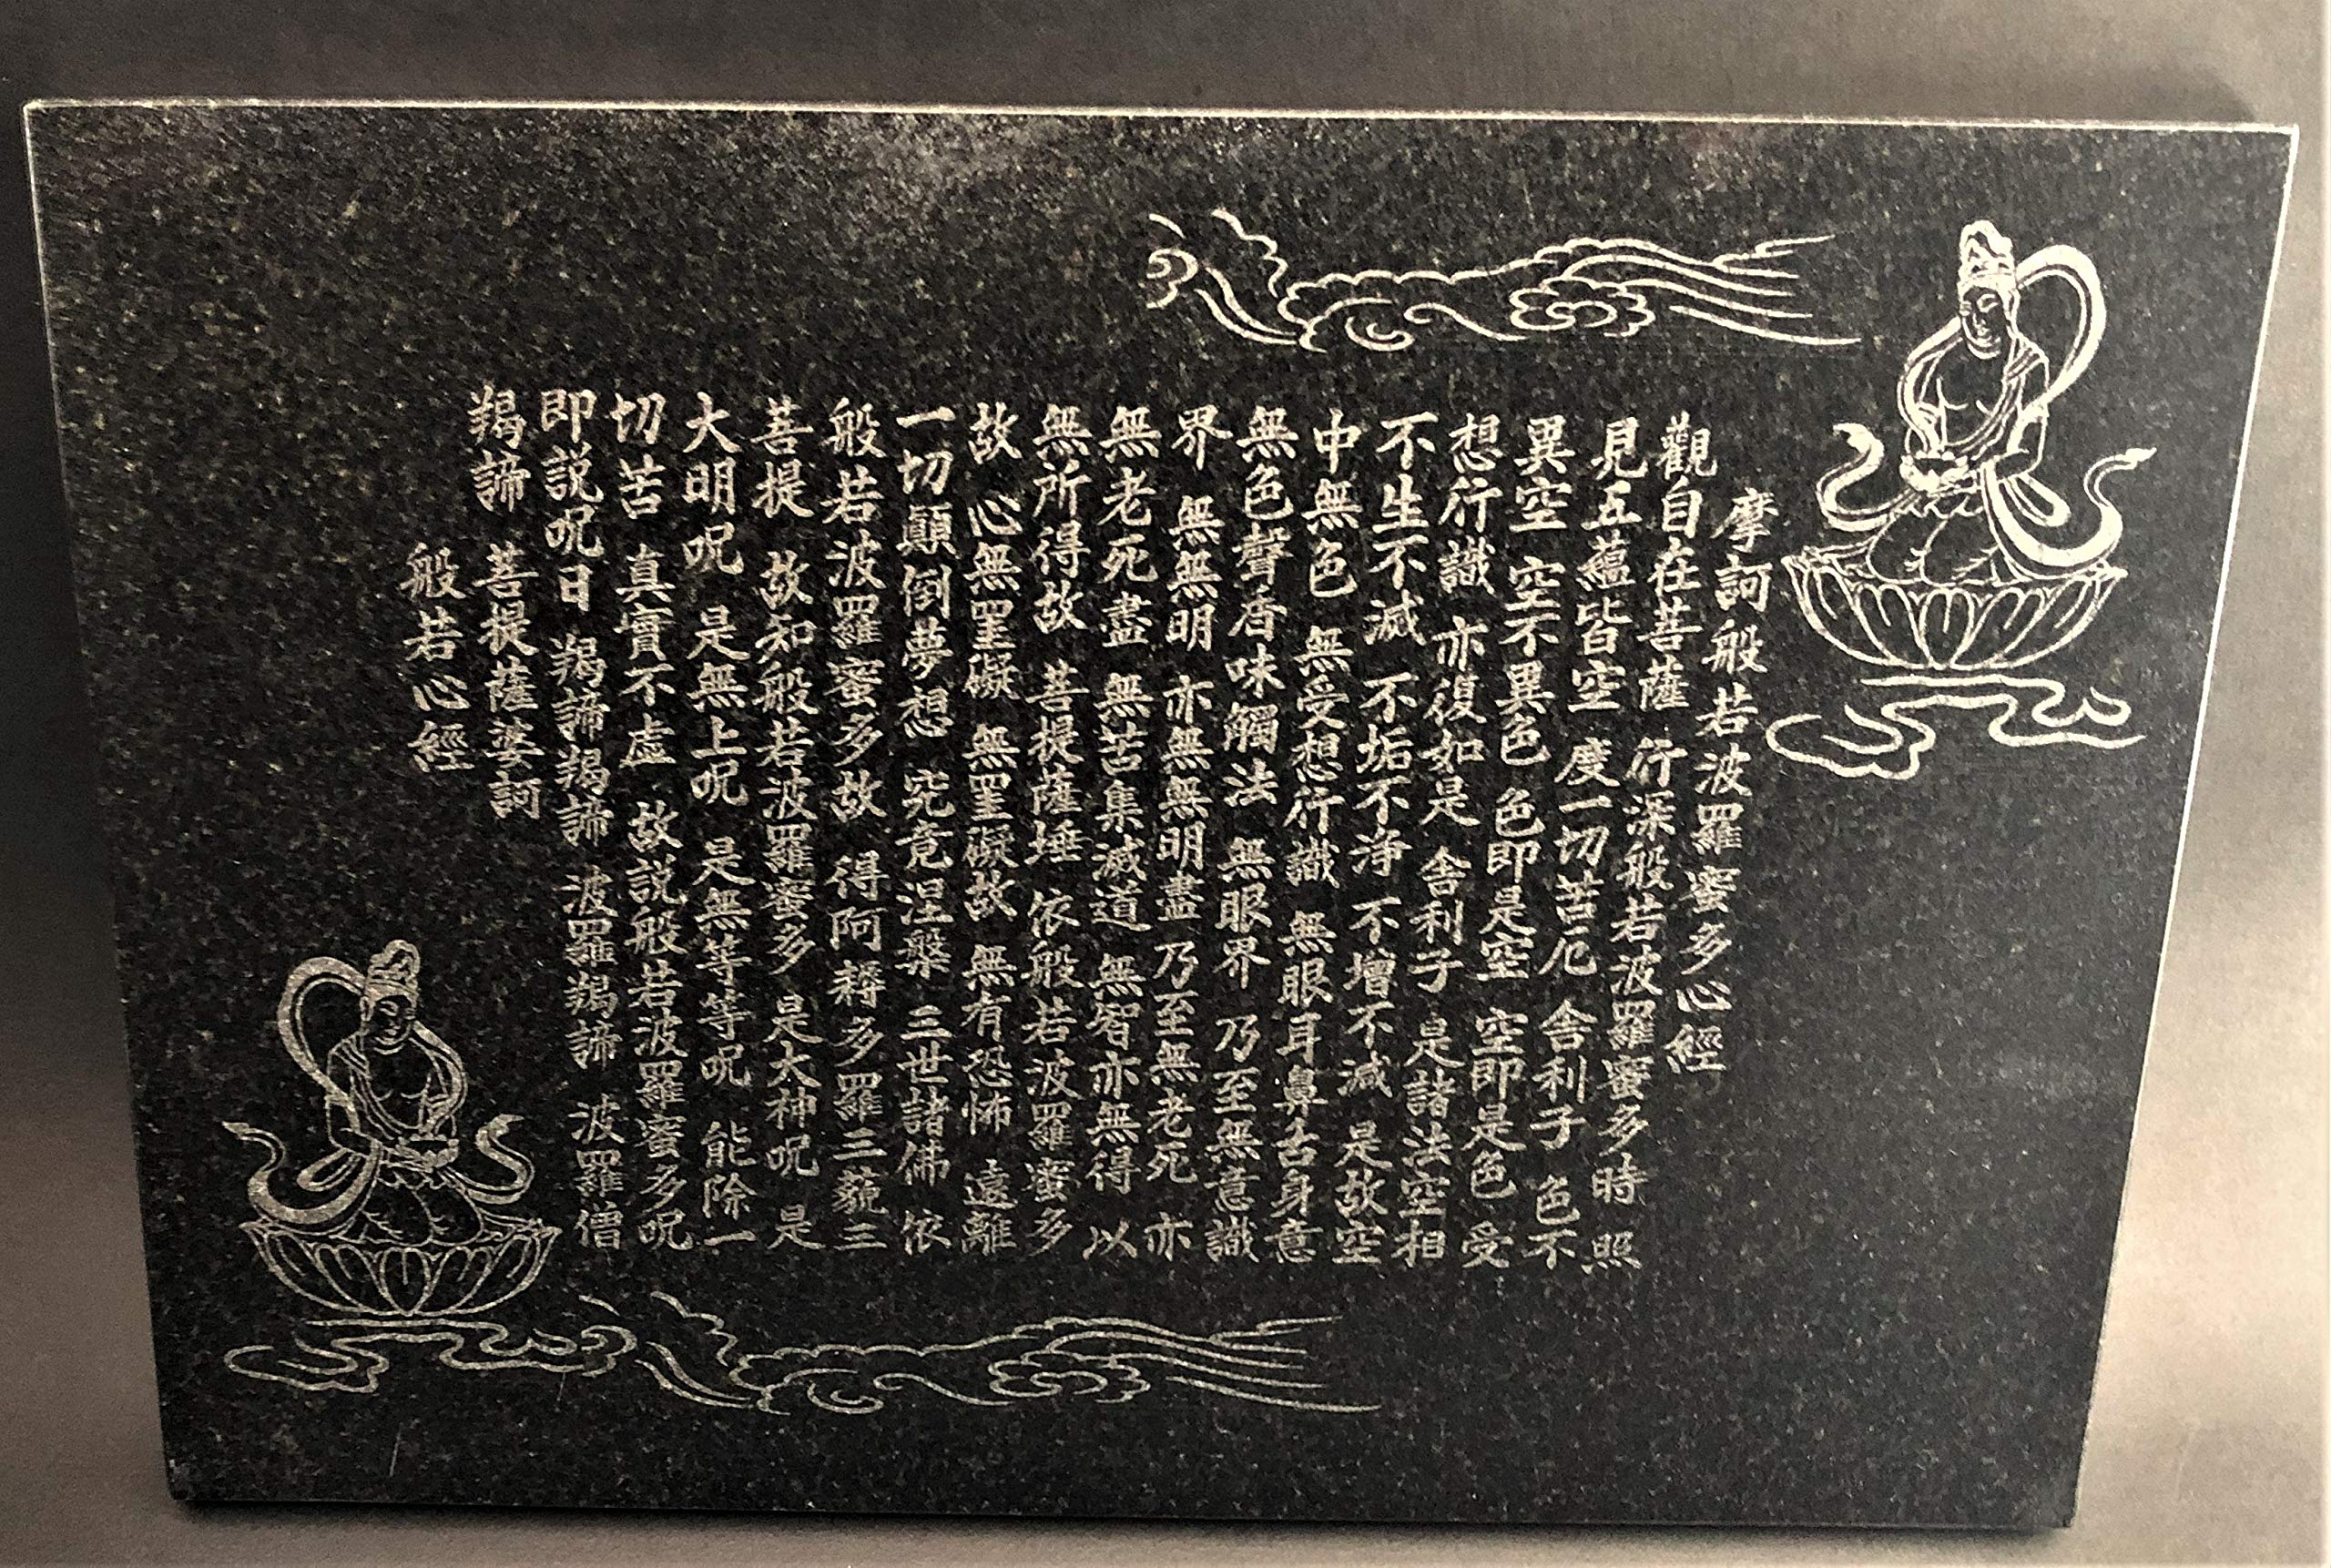 摩訶般若波羅蜜多心經
觀自在菩薩 行深般若波羅蜜多時 照
見五蘊皆空 度一切苦厄 舍利子 色不
異空 空不異色 色即是空 空即是色 受
想行識 亦復如是 舍利子 是諸法空相
不生不滅 不垢不淨 不增不減 是故空
中無色 無受想行識 無眼耳鼻舌身意
無色聲香味觸法 無眼界 乃至無意識
界 無無明 亦無無明盡 乃至無老死 亦
無老死盡 無苦集滅道 無智亦無得 以
無所得故 菩提薩埵 依般若波羅蜜多
故 心無罣礙 無罣礙故 無有恐怖 遠離
一切顛倒夢想 究竟涅槃 三世諸佛 依
般若波羅蜜多故 得阿耨多羅三藐三
菩提 故知般若波羅蜜多 是大神呪 是
大明呪 是無上呪 是無等等呪 能除一
切苦 真實不虛 故説般若波羅蜜多呪
即説呪曰 羯諦羯諦 波羅羯諦 波羅僧
羯諦 菩提薩婆訶
般若心經